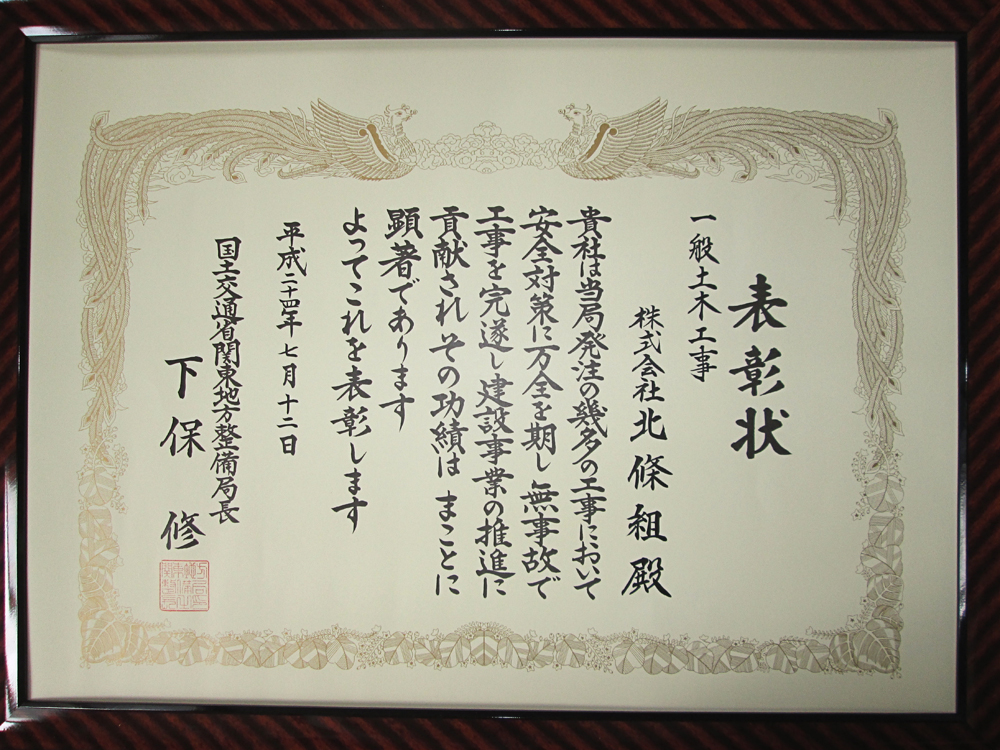 表彰状
一般土木工事
株式会社北條組殿
貴社は当局発注の幾多の工事において
安全対策に万全を期し無事故で
工事を完遂し建設事業の推進に
貢献されその功績はまことに
顕著であります
よってこれを表彰します
平成二十四年七月十二日
国土交通省関東地方整備局長
下保修